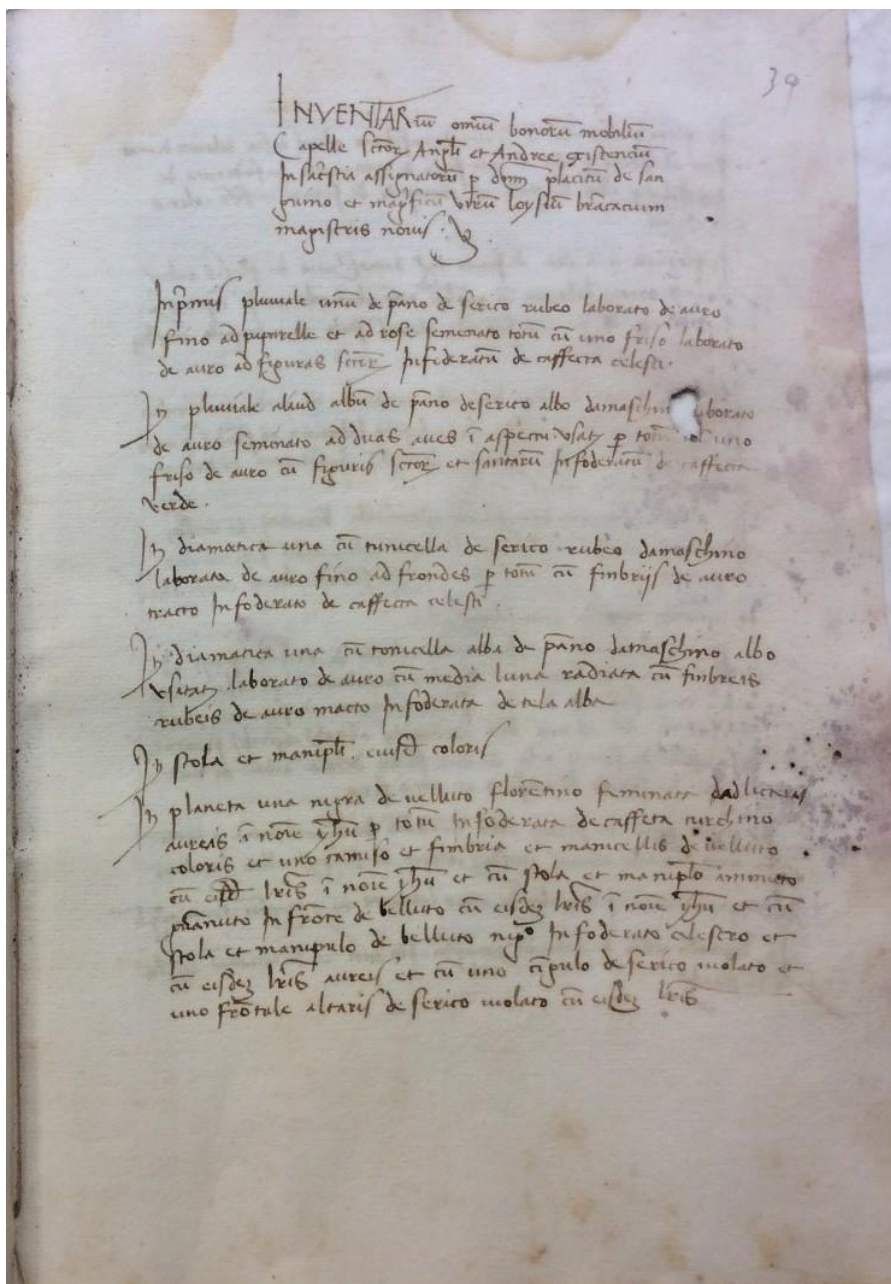 39
INVENTARiũ omniũ bonorũ mobiliũ
Capelle sctor Angli et Andree existenciũ
In sacrestia assignatorũ p dnm placitũ de san
guino et magficũ virũ loysiũ brãcacium
magistris novis.
Inprimis pluviale unũ de pãno de serico rubeo laborato de auro
fino ad papirelle et ad rose seminato totũ cũ uno friso laborato
de auro ad figuras sctor Infoderatũ de taffecta celesti.
It pluviale aliud albũ de pãno de serico albo damaschin
de auro seminato ad duas aves ĩ aspectu usat p totũ uno
friso de auro cũ figuris sctor et santarũ Infoderatũ de taffecta
verde.
It diamatica una cũ tunicella de serico rubeo damaschino
laborata de auro fino ad frondes p totũ cũ finbrijs de auro
tracto Infoderato de taffecta celesti.
It diamatica una cũ tonicella alba de pãno damaschino albo
usitat laborato de auro cũ media luna radiata cũ finbreis
rubeis de auro macto Infoderata de tela alba
It stola et manipli eiusd coloris
It planeta una nigra de velluto florentino seminata ad licteras
aureas ĩ noie yhu p totũ Infoderata de taffeta turchino
coloris et uno camiso et fimbria et manicellis de velluto
cũ eisd lris ĩ noie yhu et cũ stola et maniplo ammito
In fronte de belluto cũ eisdez lris ĩ noie yhu et cũ
stola et manipulo de belluto nigo Infoderato celestro et
cũ eisdez lris aureis et cũ uno cĩgulo de serico violato et
uno frõtale altaris de serico violato cũ eisdez lris